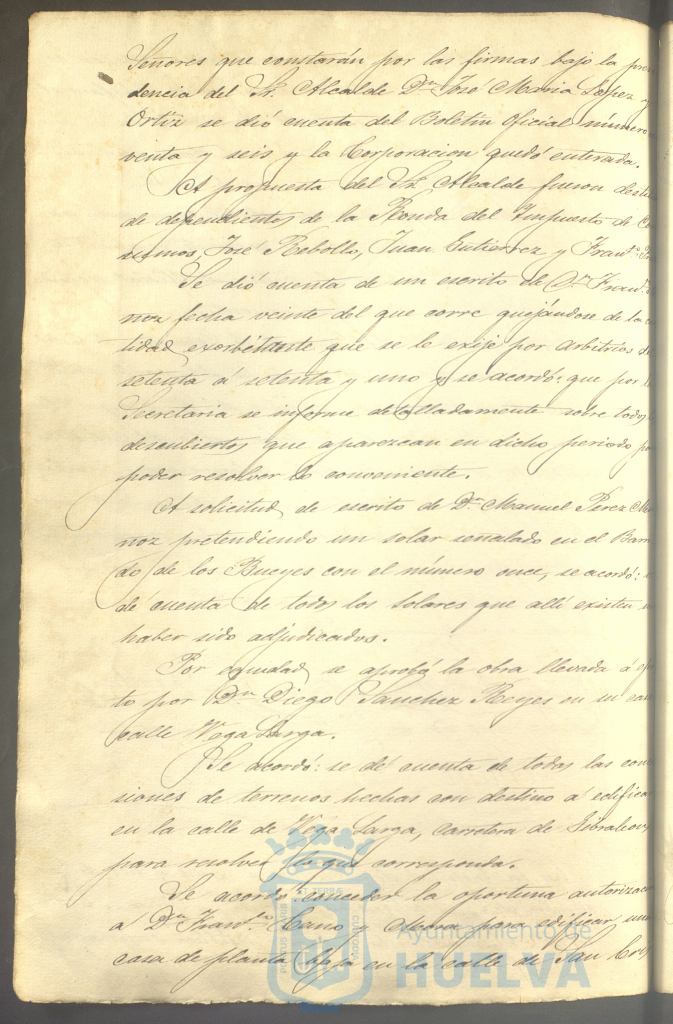 Señores que constarán por las firmas bajo la presi
dencia del Sr. Alcalde Dn. José Maria Lopez y
Ortiz se dió cuenta del Boletin Oficial número
venta y seis y la Corporacion quedó enterada.
A propuesta del Sr. Alcalde fueron
de dependientes de la Ronda del Impuesto de Con
sumos, José Rebollo, Juan Gutierrez y Franco.
Se dió cuenta de un escrito de Dn. Franco.
noz fecha veinte del que corre quejándose de la
tidad exorbitante que se le exije por arbitrios de
setenta á setenta y uno y se acordó: que por la
Secretaria se informe detalladamente sobre todos
descubiertos que aparezcan en dicho periodo pa
poder resolver lo conveniente.
A solicitud de escrito de Dn. Manuel Perez Mu
noz pretendiendo un solar señalado en el Barr
do de los Bueyes con el número once, se acordó:
dé cuenta de todos los solares que allí existen
haber sido adjudicados.
Por equidad se aprobó la obra llevada á efe
to por Dn. Diego Sanchez Reyes en su casa
calle Vega Larga.
Se acordó: se dé cuenta de todas las conce
siones de terrenos hechas con destino á edifica
en la calle de Vega Larga, Carretera de Gibraleon
para resolver lo que corresponda.
Se acordó conceder la oportuna autorizaci
a Dn. Franco. Cano y Mora para edificar una
casa de planta baja en la calle de San Cris
PORTUS MARIS ET TERRE CUSTODIA
Ayuntamiento de
HUELVA